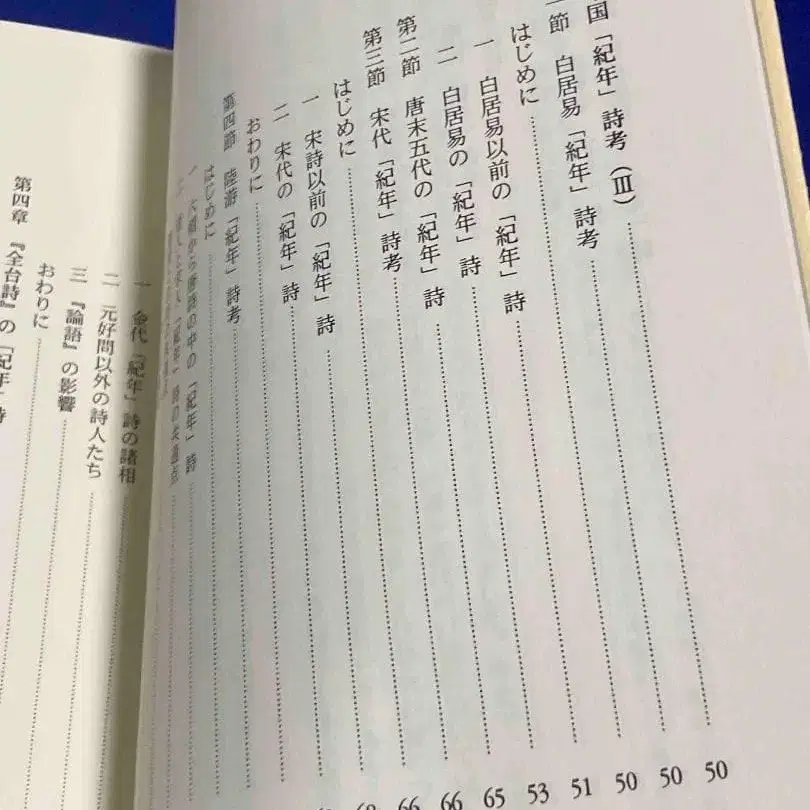 国「紀年」詩考（Ⅲ）……50
節 白居易「紀年」詩考……50
はじめに……50
一 白居易以前の「紀年」詩……51
二 白居易の「紀年」詩……53
第二節 唐末五代の「紀年」詩……65
第三節 宋代「紀年」詩考……66
はじめに……66
一 宋詩以前の「紀年」詩……
二 宋代の「紀年」詩……
おわりに……
第四節 陸游「紀年」詩考……
はじめに……
一 六朝から唐詩の中の「紀年」詩……
「紀年」詩の共通点……
一 金代「紀年」詩の諸相……
二 元好問以外の詩人たち……
三 『論語』の影響……
おわりに……
第四章 『全台詩』の「紀年」詩